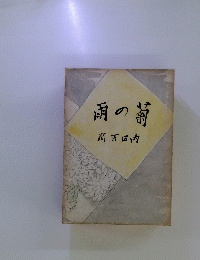 菊の雨
内田百閒